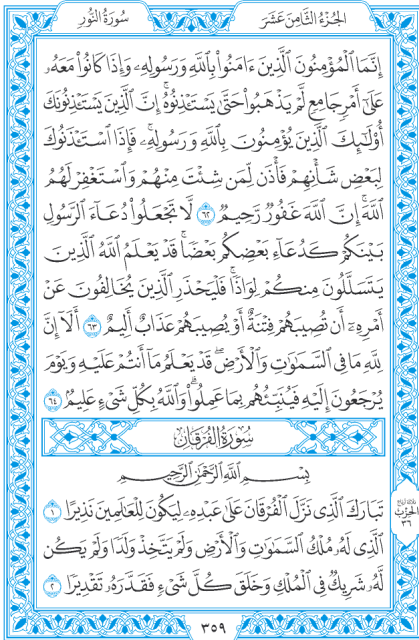 سُورَةُ النُّورِ
الجُزْءُ الثَّامِنَ عَشَرَ
إِنَّمَا ٱلْمُؤْمِنُونَ ٱلَّذِينَ ءَامَنُوا۟ بِٱللَّهِ وَرَسُولِهِۦ وَإِذَا كَانُوا۟ مَعَهُۥ
عَلَىٰٓ أَمْرٍ جَامِعٍ لَّمْ يَذْهَبُوا۟ حَتَّىٰ يَسْتَـْٔذِنُوهُ ۚ إِنَّ ٱلَّذِينَ يَسْتَـْٔذِنُونَكَ
أُو۟لَٰٓئِكَ ٱلَّذِينَ يُؤْمِنُونَ بِٱللَّهِ وَرَسُولِهِۦ ۚ فَإِذَا ٱسْتَـْٔذَنُوكَ
لِبَعْضِ شَأْنِهِمْ فَأْذَن لِّمَن شِئْتَ مِنْهُمْ وَٱسْتَغْفِرْ لَهُمُ
ٱللَّهَ ۚ إِنَّ ٱللَّهَ غَفُورٌ رَّحِيمٌ ٦٢ لَّا تَجْعَلُوا۟ دُعَآءَ ٱلرَّسُولِ
بَيْنَكُمْ كَدُعَآءِ بَعْضِكُم بَعْضًا ۚ قَدْ يَعْلَمُ ٱللَّهُ ٱلَّذِينَ
يَتَسَلَّلُونَ مِنكُمْ لِوَاذًا ۚ فَلْيَحْذَرِ ٱلَّذِينَ يُخَالِفُونَ عَنْ
أَمْرِهِۦٓ أَن تُصِيبَهُمْ فِتْنَةٌ أَوْ يُصِيبَهُمْ عَذَابٌ أَلِيمٌ ٦٣ أَلَآ إِنَّ
لِلَّهِ مَا فِى ٱلسَّمَٰوَٰتِ وَٱلْأَرْضِ ۖ قَدْ يَعْلَمُ مَآ أَنتُمْ عَلَيْهِ وَيَوْمَ
يُرْجَعُونَ إِلَيْهِ فَيُنَبِّئُهُم بِمَا عَمِلُوا۟ ۗ وَٱللَّهُ بِكُلِّ شَىْءٍ عَلِيمٌۢ ٦٤
سُورَةُ الفُرْقَانِ
بِسْمِ ٱللَّهِ ٱلرَّحْمَٰنِ ٱلرَّحِيمِ
تَبَارَكَ ٱلَّذِى نَزَّلَ ٱلْفُرْقَانَ عَلَىٰ عَبْدِهِۦ لِيَكُونَ لِلْعَٰلَمِينَ نَذِيرًا ١
ٱلَّذِى لَهُۥ مُلْكُ ٱلسَّمَٰوَٰتِ وَٱلْأَرْضِ وَلَمْ يَتَّخِذْ وَلَدًا وَلَمْ يَكُن
لَّهُۥ شَرِيكٌ فِى ٱلْمُلْكِ وَخَلَقَ كُلَّ شَىْءٍ فَقَدَّرَهُۥ تَقْدِيرًا ٢
ثلاثة أرباع
الحزب
٣٦
٣٥٩